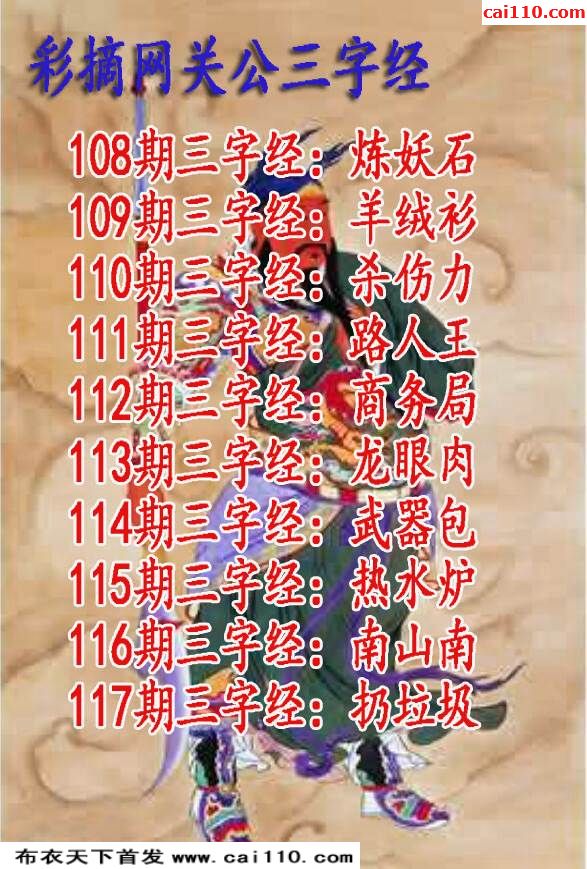 cai110.com
彩摘网关公三字经
108期三字经：炼妖石
109期三字经：羊绒衫
110期三字经：杀伤力
111期三字经：路人王
112期三字经：商务局
113期三字经：龙眼肉
114期三字经：武器包
115期三字经：热水炉
116期三字经：南山南
117期三字经：扔垃圾
布衣天下首发 www.cai110.com